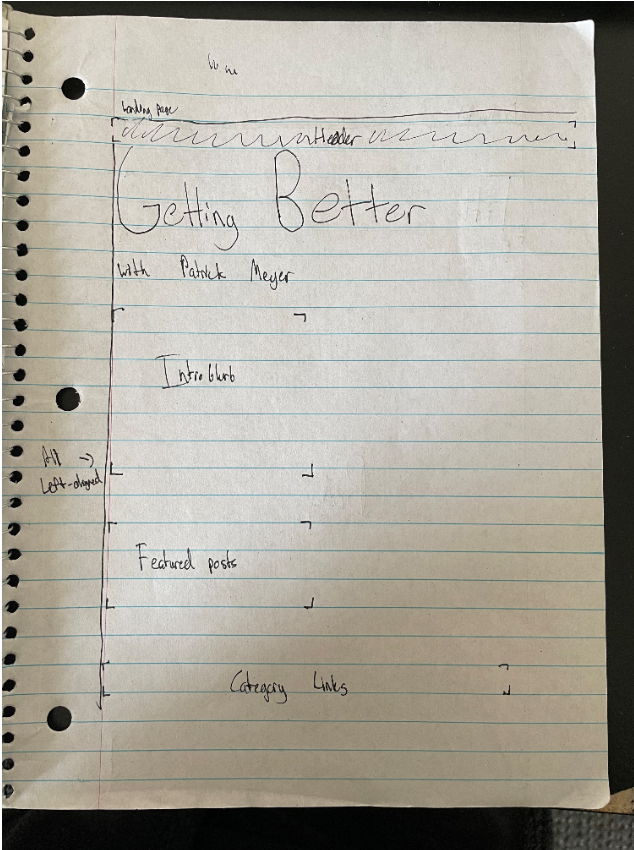 Landing page
Header
Getting Better
with Patrick Meyer
Intro blurb
All →
Left-aligned
Featured posts
Category Links